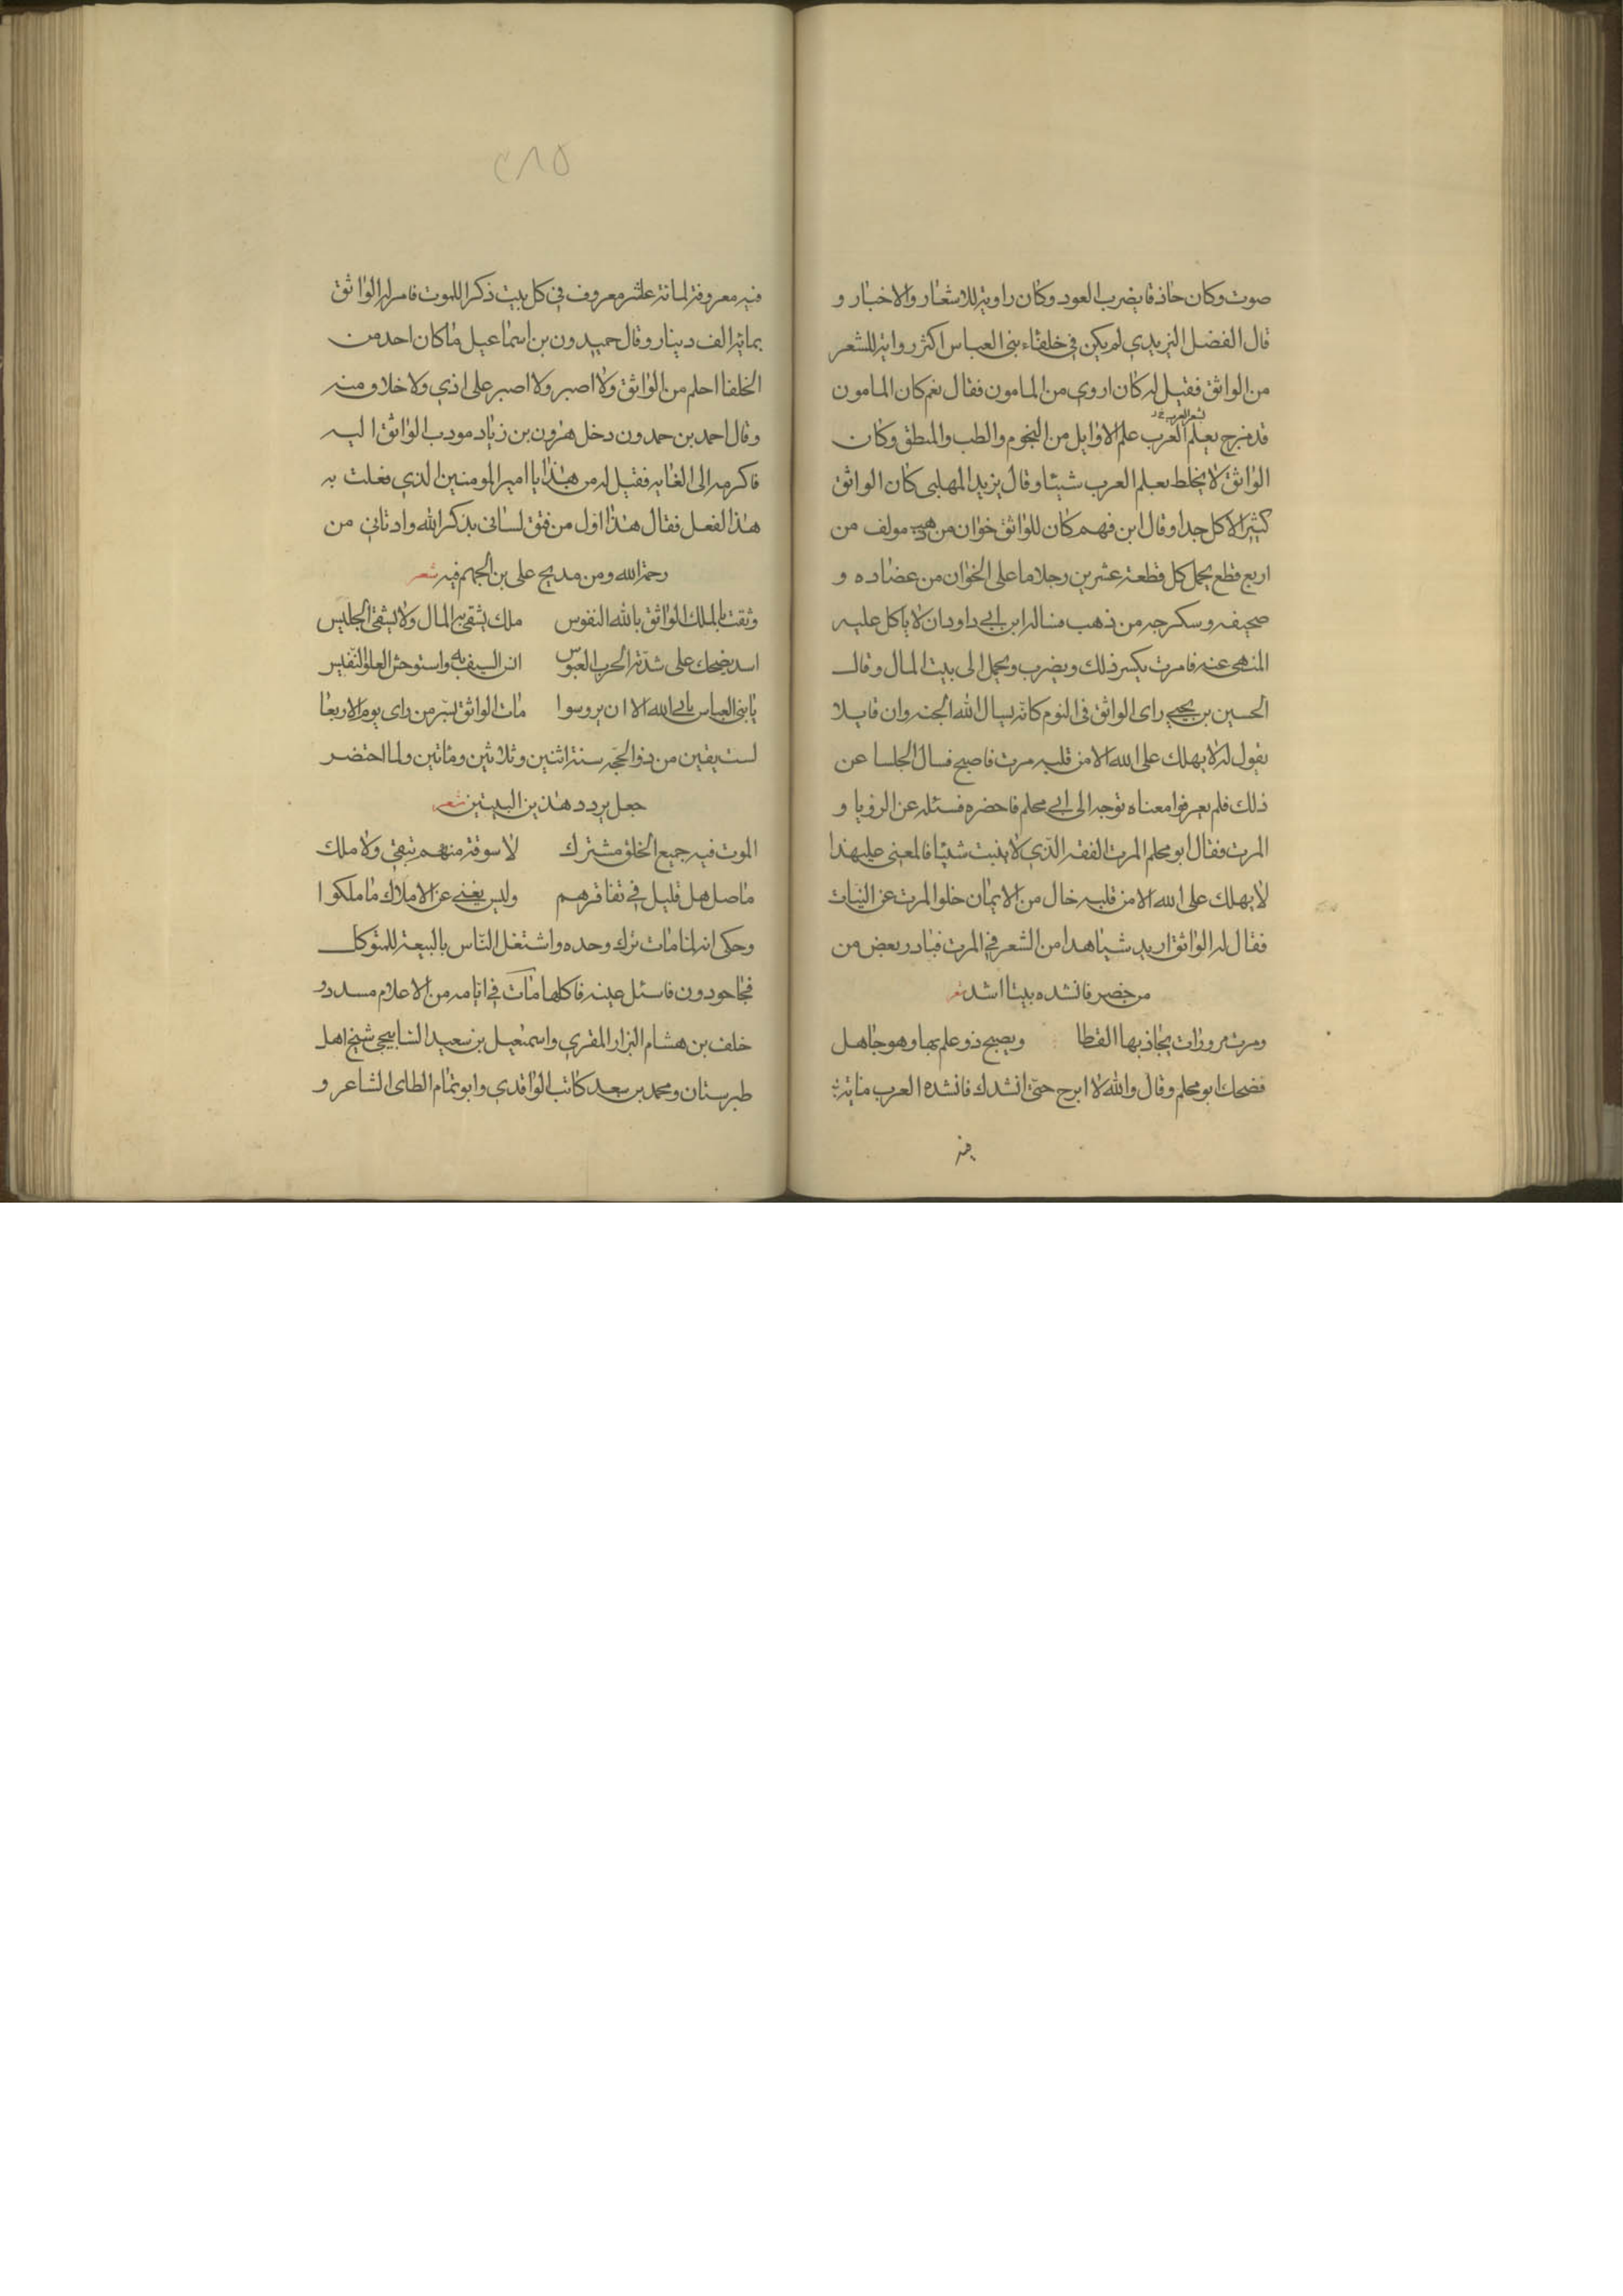 صوت وكان حاذقا يضرب العود وكان راوية للاشعار والاخبار و
قال الفضل اليزيدي لم يكن في خلفاء بني العباس اكثر رواية للشعر
من الواثق فقيل له كان اروي من المامون فقال نعم كان المامون
قد مزج بعلم العرب علم الاوايل من النجوم والطب والمنطق وكان
الواثق لا يخلط بعلم العرب شيئا وقال يزيد المهلبي كان الواثق
كثير الاكل جدا وقال ابن فهم كان للواثق خوان من ذهب مولف من
اربع قطع يحمل كل قطعة عشرين رجلا ما على الخوان من عضاده و
صحيفه وسكرجه من ذهب فساله ابن ابي داود ان لا ياكل عليه
المنهى عنه فامرت بكسر ذلك ويضرب ويحمل الى بيت المال وقال
الحسين بن يحيي راى الواثق في النوم كانه يسال الله الجنه وان قايلا
يقول له لا يهلك على الله الا من قلبه مرت فاصبح فسال الجلسا عن
ذلك فلم يعرفوا معناه توجه الى ابي محلم فاحضره فسئله عن الرؤيا و
المرت فقال ابو محلم المرت الفقه الذي لا ينبت شيئا فالمعنى عليهذا
لا يهلك على الله الا من قلبه خال من الايمان خلو المرت عن النبات
فقال له الواثق اريد شياهدا من الشعر في المرت فبادر بعض من
من حضر فانشده بيتا اشد شعر
ومرت مرورات يحاذبها القطا ويصبح ذو علم بها وهو جاهل
فضحك ابو محلم وقال والله لا ابرح حتى انشدك فانشده العرب ماية
فيه
٢٨٥
فيه معروفة لمانة عشر معروف في كل بيت ذكر اللموت فامر له الواثق
بمايه الف دينار وقال حميدون بن اسماعيل ما كان احد من
الخلفا احلم من الواثق ولا اصبر ولا اصبر على اذي ولا خلاو منه
وقال احمد بن حمدون دخل هرون بن زياد مودب الواثق اليه
فاكرمه الى الغايه فقيل له من هذا يا امير المومنين الذي فعلت به
هذا الفعل فقال هذا اول من فتق لساني بذكر الله وادناني من
رحمة الله ومن مديح على بن الجهم فيه شعر
وثقت بالملك الواثق بالله النفوس ملك يشقى به المال ولا يشقى الجليس
اسد يضحك على شدته الحرب العبوس انس السيف به واستوحش العلق النفيس
يا بني العباس يابى الله الا ان يروسوا مات الواثق بسر من راى يوم الاربعا
لست بقين من ذوالحجه سنة اثنين وثلاثين ومائتين ولما احتضر
جعل يردد هذين البيتين شعر
الموت فيه جميع الخلق مشترك لا سوقة منهم تبقى ولا ملك
ما صل هل قليل في تفاقرهم وليس يغني عن الاملاك ما ملكوا
وحكى انه لما مات ترك وحده واشتغل الناس بالبيعة للمتوكل
فجا حودون فاستل عينه فاكلها مات في ايامه من الاعلام مسدد و
خلف بن هشام البزار المقري واسمعيل بن سعيد الشابيحى شيخ اهل
طبرستان ومحمد بن سعد كاتب الواقدي وابو تمام الطاى الشاعر و